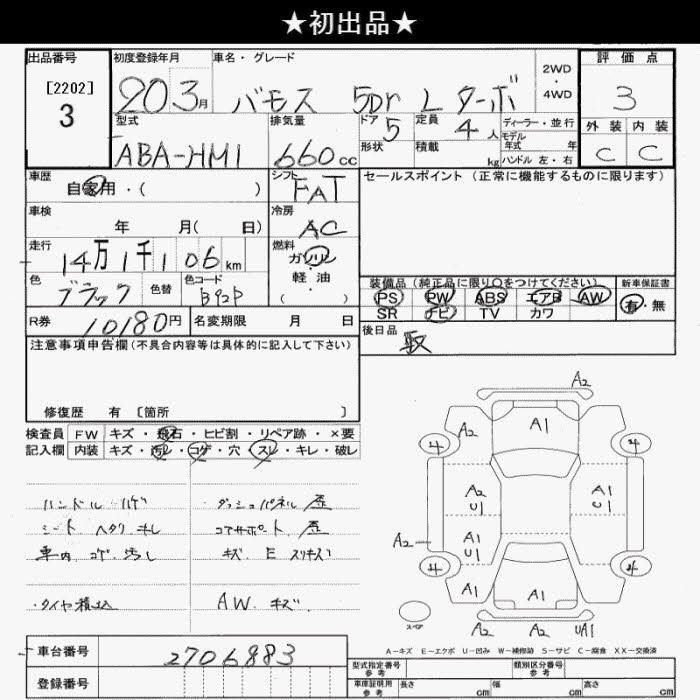 ★初出品★
出品番号 初度登録年月 車名・グレード 2WD・4WD 評価点
[2202]
3 20 3月 バモス 5Dr L ターボ 3
型式 排気量 ドア 定員 ディーラー・並行 外装 内装
ABA-HM1 660cc 5 4人 モデル年式 年 C C
形状 積載 kg ハンドル 左・右
車歴 シフト セールスポイント (正常に機能するものに限ります)
自家用・( ) FAT
車検 冷房
年 月( 日) AC
走行 燃料
14万1千106km ガソリン・軽油
色 色替 色コード ( ) 装備品 (純正品に限り○をつけてください) 新車保証書
ブラック B92P PS PW ABS エアB AW 有・無
SR ナビ TV カワ
R券 10180円 名変期限 月 日 後日品
取
注意事項申告欄(不具合内容等は具体的に記入して下さい)
修復歴 有 [箇所 ]
検査員 FW キズ・飛石・ヒビ割・リペア跡・×要
記入欄 内装 キズ・汚レ・コゲ・穴・スレ・キレ・破レ
ハンドル ハゲ ダッシュパネル 歪
シート ヘタリ キレ コアサポート 歪
車内 コゲ 汚レ キズ E スリキズ
・タイヤ積込 AW キズ
A2
A2 A1
4 4
A2 U1 A1 U1
A2 A1 U1
4 4
A1 A1 A1
スペア A2 A2 UA1
A-キズ E-エクボ U-凹み W-補修跡 S-サビ C-腐食 XX-交換済
車台番号 2706883
登録番号
型式指定番号 参考 類別区分番号 参考
車庫証明用 参考 長さ cm 幅 cm 高さ cm